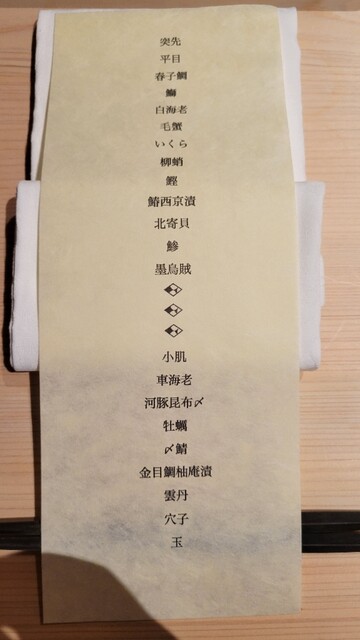 突先
平目
春子鯛
鰤
白海老
毛蟹
いくら
柳蛸
鰹
鰆西京漬
北寄貝
鯵
墨烏賊
小肌
車海老
河豚昆布〆
牡蠣
〆鯖
金目鯛柚庵漬
雲丹
穴子
玉